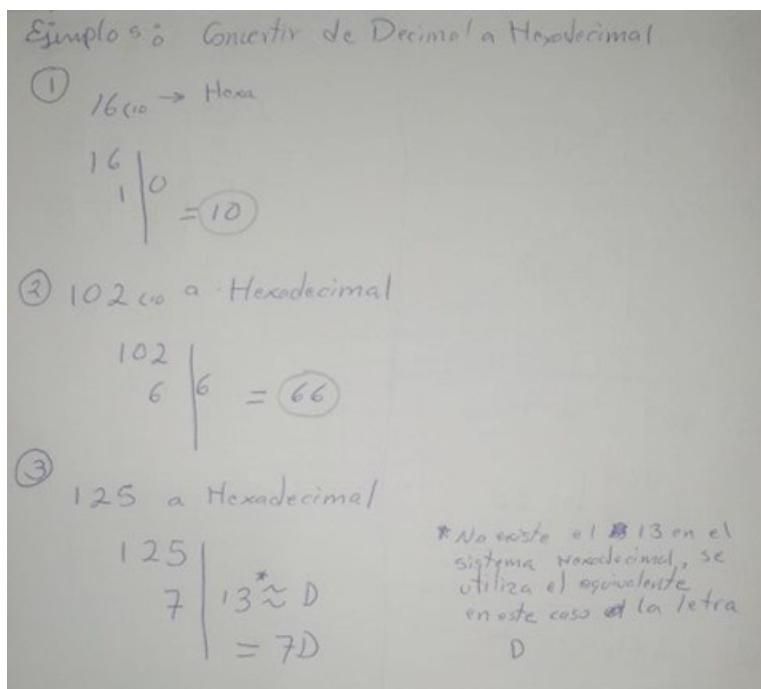 Ejemplos: Concertir de Decimal a Hexadecimal
1
16(10 → Hexa
16
1 | 0
= 10
2 102(10 a Hexadecimal
102
6 | 6 = 66
3
125 a Hexadecimal
125
7 | 13* ≈ D
= 7D
* No existe el 13 en el
sistema Hexadecimal, se
utiliza el equivalente
en este caso la letra
D